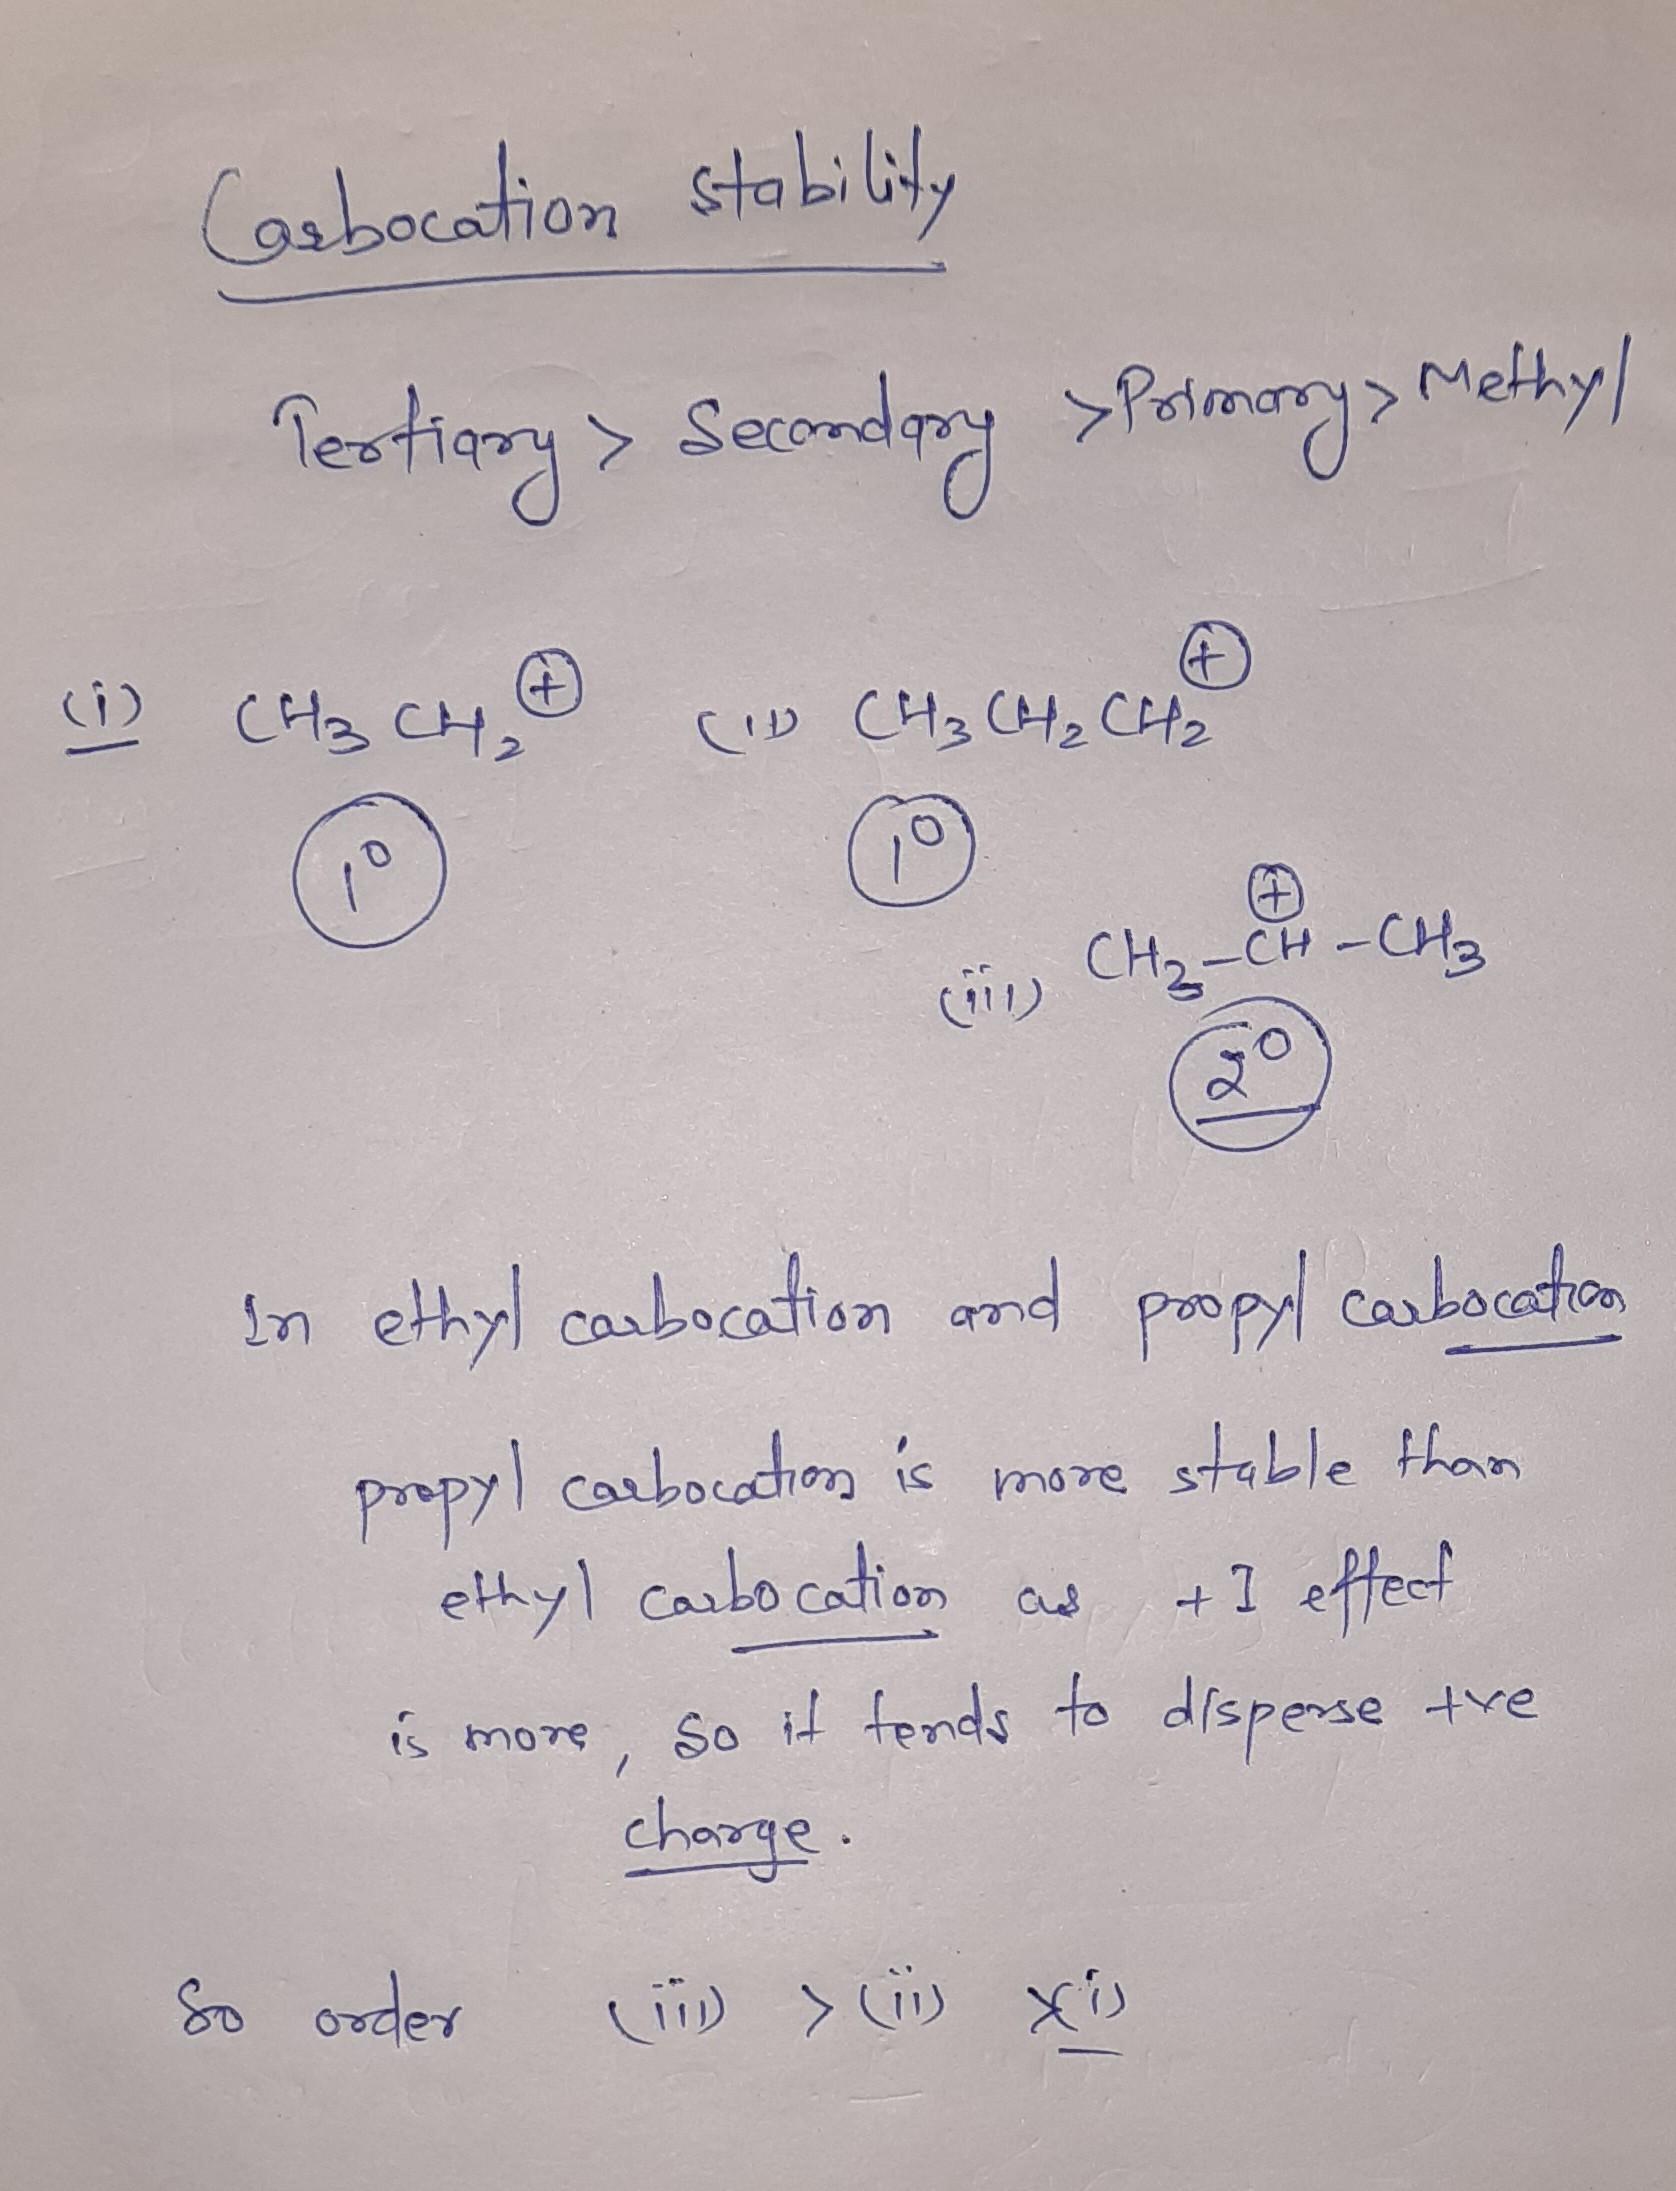 Carbocation stability
Tertiary > Secondary > Primary > Methyl
(i) CH3 CH2 ⊕ (ii) CH3 CH2 CH2 ⊕
1° 1°
(iii) CH3 - CH ⊕ - CH3
2°
In ethyl carbocation and propyl carbocation
propyl carbocation is more stable than
ethyl carbocation as +I effect
is more, so it tends to disperse +ve
charge.
So order (iii) > (ii) > (i)